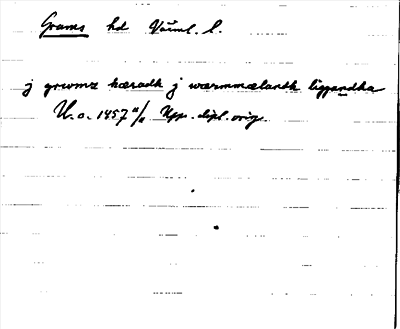 Grums hd Värml. l.
j grwmz hæradh j wærmmælandh liggandha
U. o. 1457 11/11 Upps. dipl. orig.